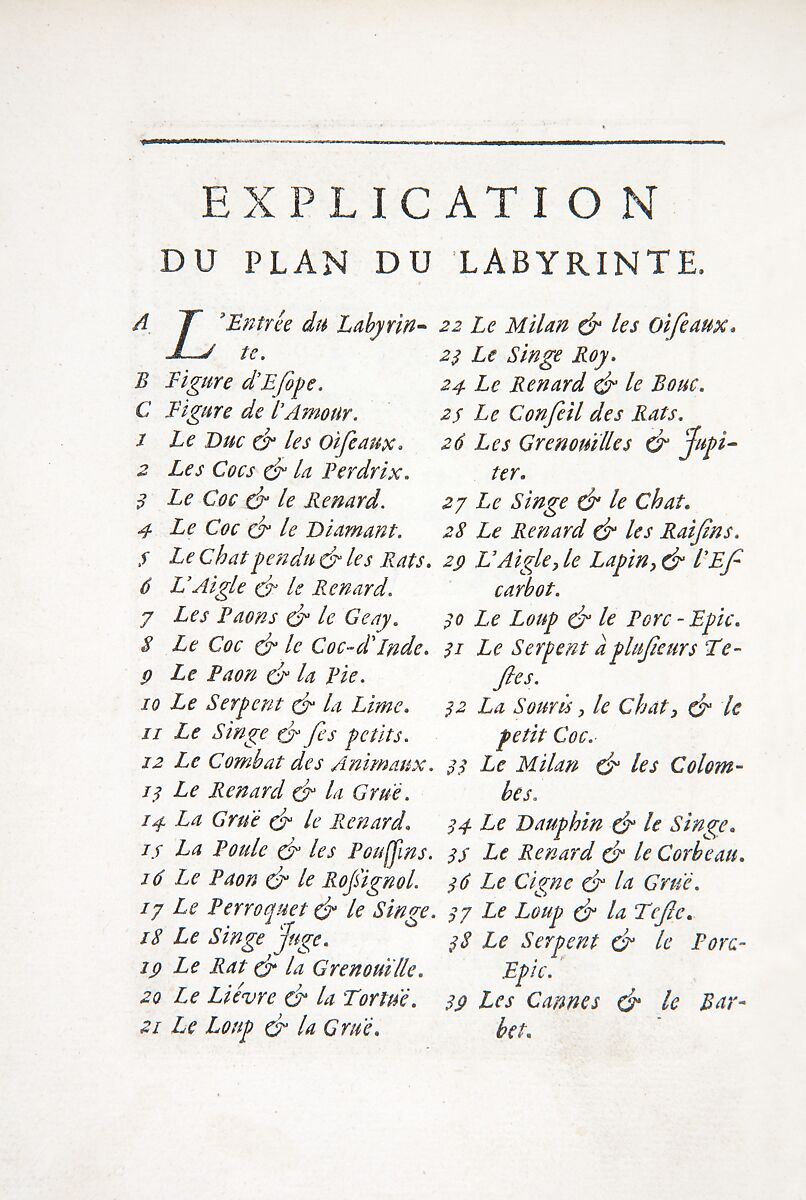 EXPLICATION
DU PLAN DU LABYRINTE.
A L'Entrée du Labyrin-
te.
B Figure d'Eſope.
C Figure de l'Amour.
1 Le Duc & les Oiſeaux.
2 Les Cocs & la Perdrix.
3 Le Coc & le Renard.
4 Le Coc & le Diamant.
5 Le Chat pendu & les Rats.
6 L'Aigle & le Renard.
7 Les Paons & le Geay.
8 Le Coc & le Coc-d'Inde.
9 Le Paon & la Pie.
10 Le Serpent & la Lime.
11 Le Singe & ſes petits.
12 Le Combat des Animaux.
13 Le Renard & la Gruë.
14 La Gruë & le Renard.
15 La Poule & les Pouſſins.
16 Le Paon & le Roſſignol.
17 Le Perroquet & le Singe.
18 Le Singe Juge.
19 Le Rat & la Grenouïlle.
20 Le Liévre & la Tortuë.
21 Le Loup & la Gruë.
22 Le Milan & les Oiſeaux.
23 Le Singe Roy.
24 Le Renard & le Bouc.
25 Le Conſeil des Rats.
26 Les Grenouïlles & Jupi-
ter.
27 Le Singe & le Chat.
28 Le Renard & les Raiſins.
29 L'Aigle, le Lapin, & l'Eſ-
carbot.
30 Le Loup & le Porc-Epic.
31 Le Serpent à pluſieurs Te-
ſtes.
32 La Souris, le Chat, & le
petit Coc.
33 Le Milan & les Colom-
bes.
34 Le Dauphin & le Singe.
35 Le Renard & le Corbeau.
36 Le Cigne & la Gruë.
37 Le Loup & la Teſte.
38 Le Serpent & le Porc-
Epic.
39 Les Cannes & le Bar-
bet.